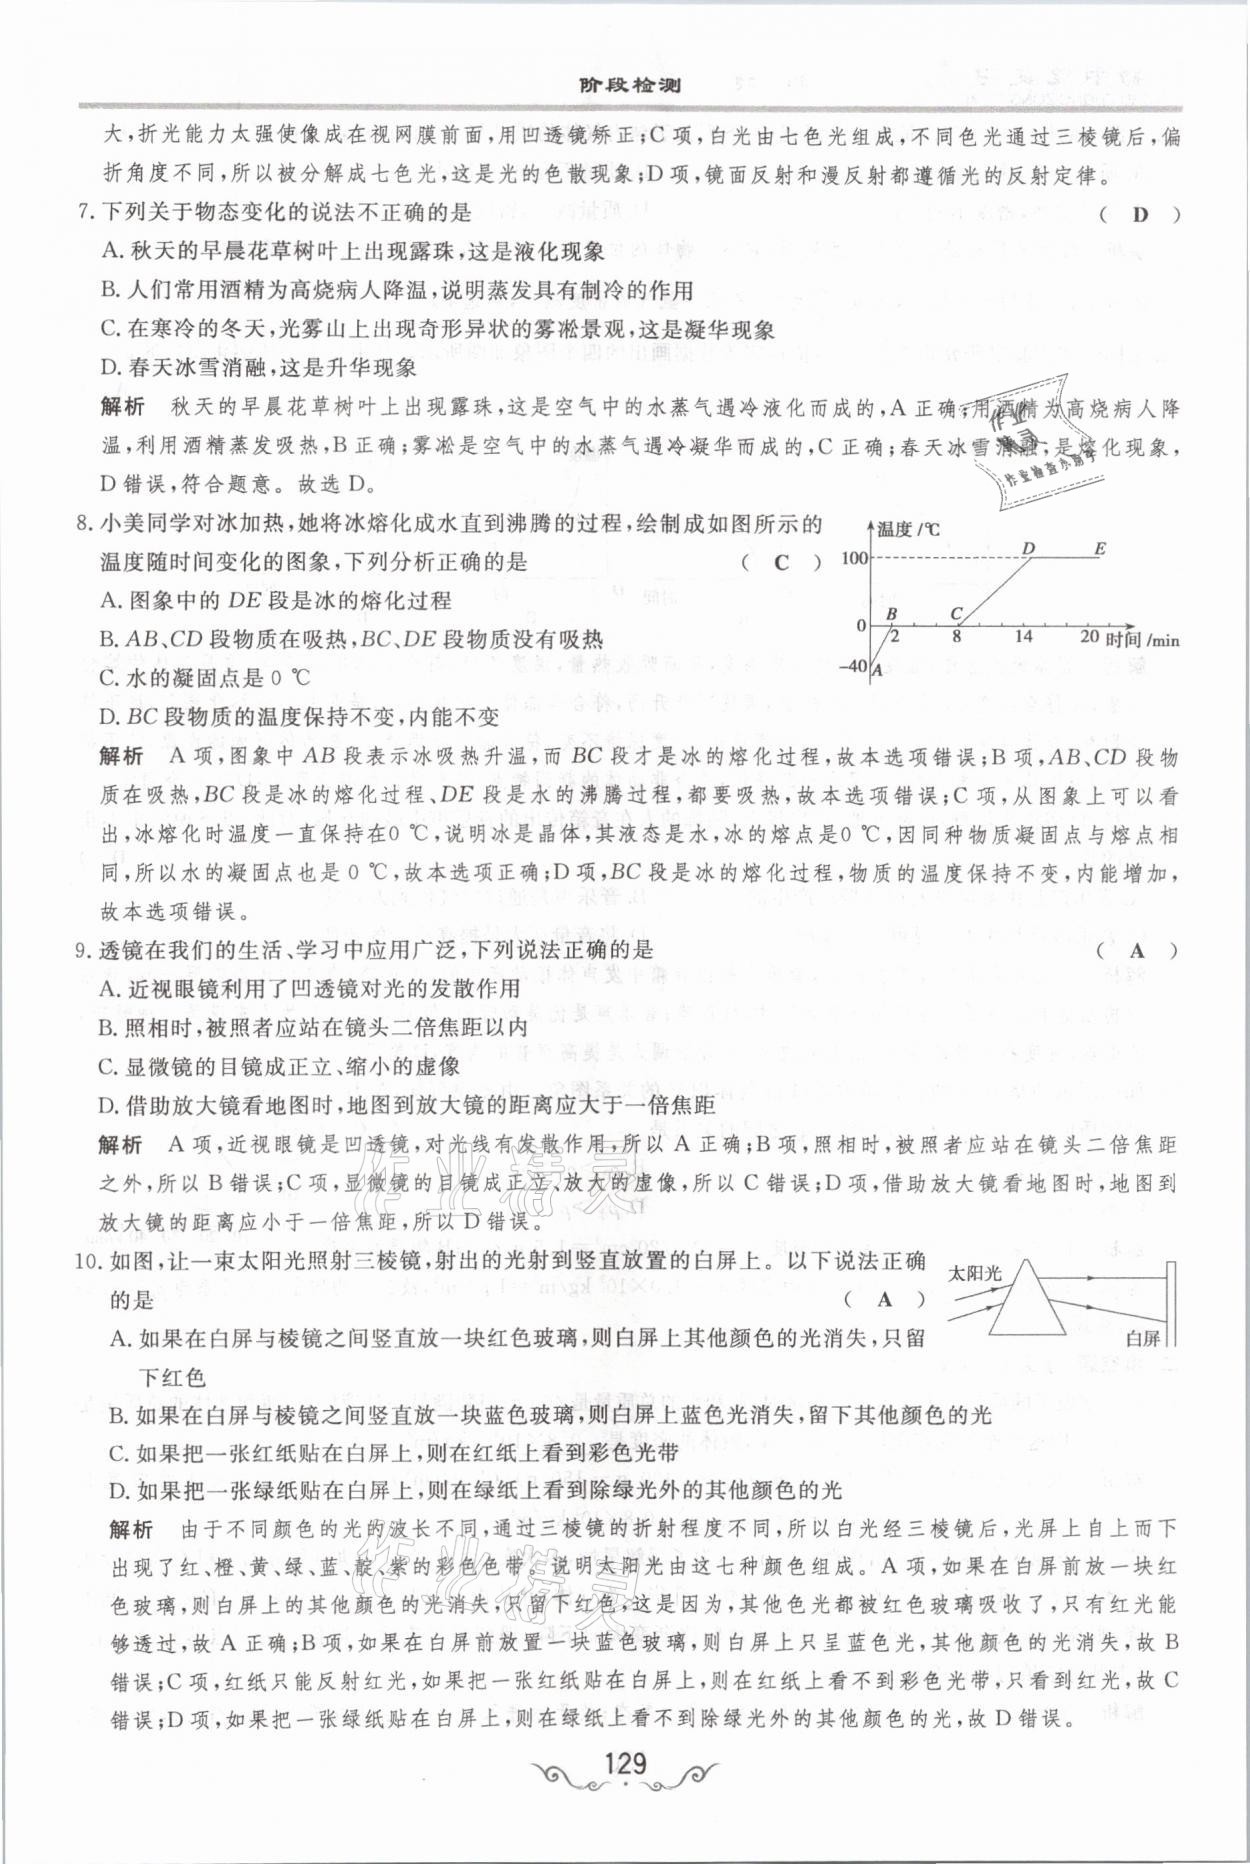 阶段检测
大,折光能力太强使像成在视网膜前面,用凹透镜矫正;C项,白光由七色光组成,不同色光通过三棱镜后,偏
折角度不同,所以被分解成七色光,这是光的色散现象;D项,镜面反射和漫反射都遵循光的反射定律。
7.下列关于物态变化的说法不正确的是 ( D )
A.秋天的早晨花草树叶上出现露珠,这是液化现象
B.人们常用酒精为高烧病人降温,说明蒸发具有制冷的作用
C.在寒冷的冬天,光雾山上出现奇形异状的雾凇景观,这是凝华现象
D.春天冰雪消融,这是升华现象
解析 秋天的早晨花草树叶上出现露珠,这是空气中的水蒸气遇冷液化而成的,A正确;用酒精为高烧病人降
温,利用酒精蒸发吸热,B正确;雾凇是空气中的水蒸气遇冷凝华而成的,C正确;春天冰雪消融,是熔化现象,
D错误,符合题意。故选D。
作业
精灵
作业检查小助手
8.小美同学对冰加热,她将冰熔化成水直到沸腾的过程,绘制成如图所示的
温度随时间变化的图象,下列分析正确的是 ( C )
A.图象中的DE段是冰的熔化过程
B.AB、CD段物质在吸热,BC、DE段物质没有吸热
C.水的凝固点是0 ℃
D.BC段物质的温度保持不变,内能不变
温度/℃
100
D E
B C
0 2 8 14 20 时间/min
-40 A
解析 A项,图象中AB段表示冰吸热升温,而BC段才是冰的熔化过程,故本选项错误;B项,AB、CD段物
质在吸热,BC段是冰的熔化过程、DE段是水的沸腾过程,都要吸热,故本选项错误;C项,从图象上可以看
出,冰熔化时温度一直保持在0 ℃,说明冰是晶体,其液态是水,冰的熔点是0 ℃,因同种物质凝固点与熔点相
同,所以水的凝固点也是0 ℃,故本选项正确;D项,BC段是冰的熔化过程,物质的温度保持不变,内能增加,
故本选项错误。
9.透镜在我们的生活、学习中应用广泛,下列说法正确的是 ( A )
A.近视眼镜利用了凹透镜对光的发散作用
B.照相时,被照者应站在镜头二倍焦距以内
C.显微镜的目镜成正立、缩小的虚像
D.借助放大镜看地图时,地图到放大镜的距离应大于一倍焦距
解析 A项,近视眼镜是凹透镜,对光线有发散作用,所以A正确;B项,照相时,被照者应站在镜头二倍焦距
之外,所以B错误;C项,显微镜的目镜成正立、放大的虚像,所以C错误;D项,借助放大镜看地图时,地图到
放大镜的距离应小于一倍焦距,所以D错误。
作业精灵
10.如图,让一束太阳光照射三棱镜,射出的光射到竖直放置的白屏上。以下说法正确
的是 ( A )
太阳光
白屏
A.如果在白屏与棱镜之间竖直放一块红色玻璃,则白屏上其他颜色的光消失,只留
下红色
B.如果在白屏与棱镜之间竖直放一块蓝色玻璃,则白屏上蓝色光消失,留下其他颜色的光
C.如果把一张红纸贴在白屏上,则在红纸上看到彩色光带
D.如果把一张绿纸贴在白屏上,则在绿纸上看到除绿光外的其他颜色的光
解析 由于不同颜色的光的波长不同,通过三棱镜的折射程度不同,所以白光经三棱镜后,光屏上自上而下
出现了红、橙、黄、绿、蓝、靛、紫的彩色色带。说明太阳光由这七种颜色组成。A项,如果在白屏前放一块红
色玻璃,则白屏上的其他颜色的光消失,只留下红色,这是因为,其他色光都被红色玻璃吸收了,只有红光能
够透过,故A正确;B项,如果在白屏前放置一块蓝色玻璃,则白屏上只呈蓝色光,其他颜色的光消失,故B
错误;C项,红纸只能反射红光,如果把一张红纸贴在白屏上,则在红纸上看不到彩色光带,只看到红光,故C
错误;D项,如果把一张绿纸贴在白屏上,则在绿纸上看不到除绿光外的其他颜色的光,故D错误。
作业精灵
129